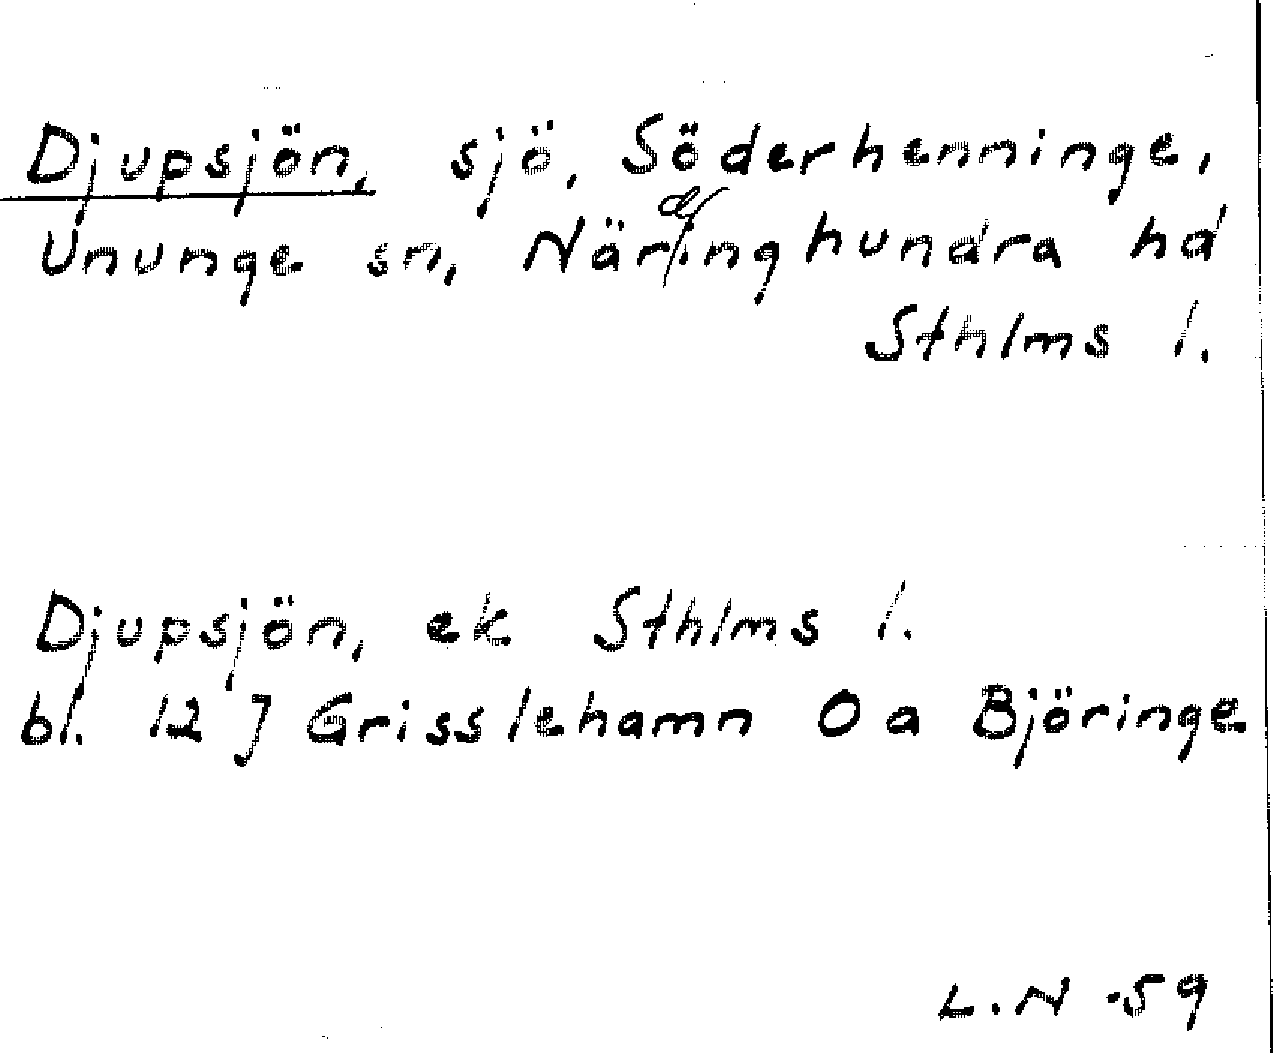 Djupsjön, sjö, Söderhenninge,
Ununge sn, Närdinghundra hd
Sthlms l.
Djupsjön, ek Sthlms l.
bl. 12 J Grisslehamn O a Björinge
L.N -59